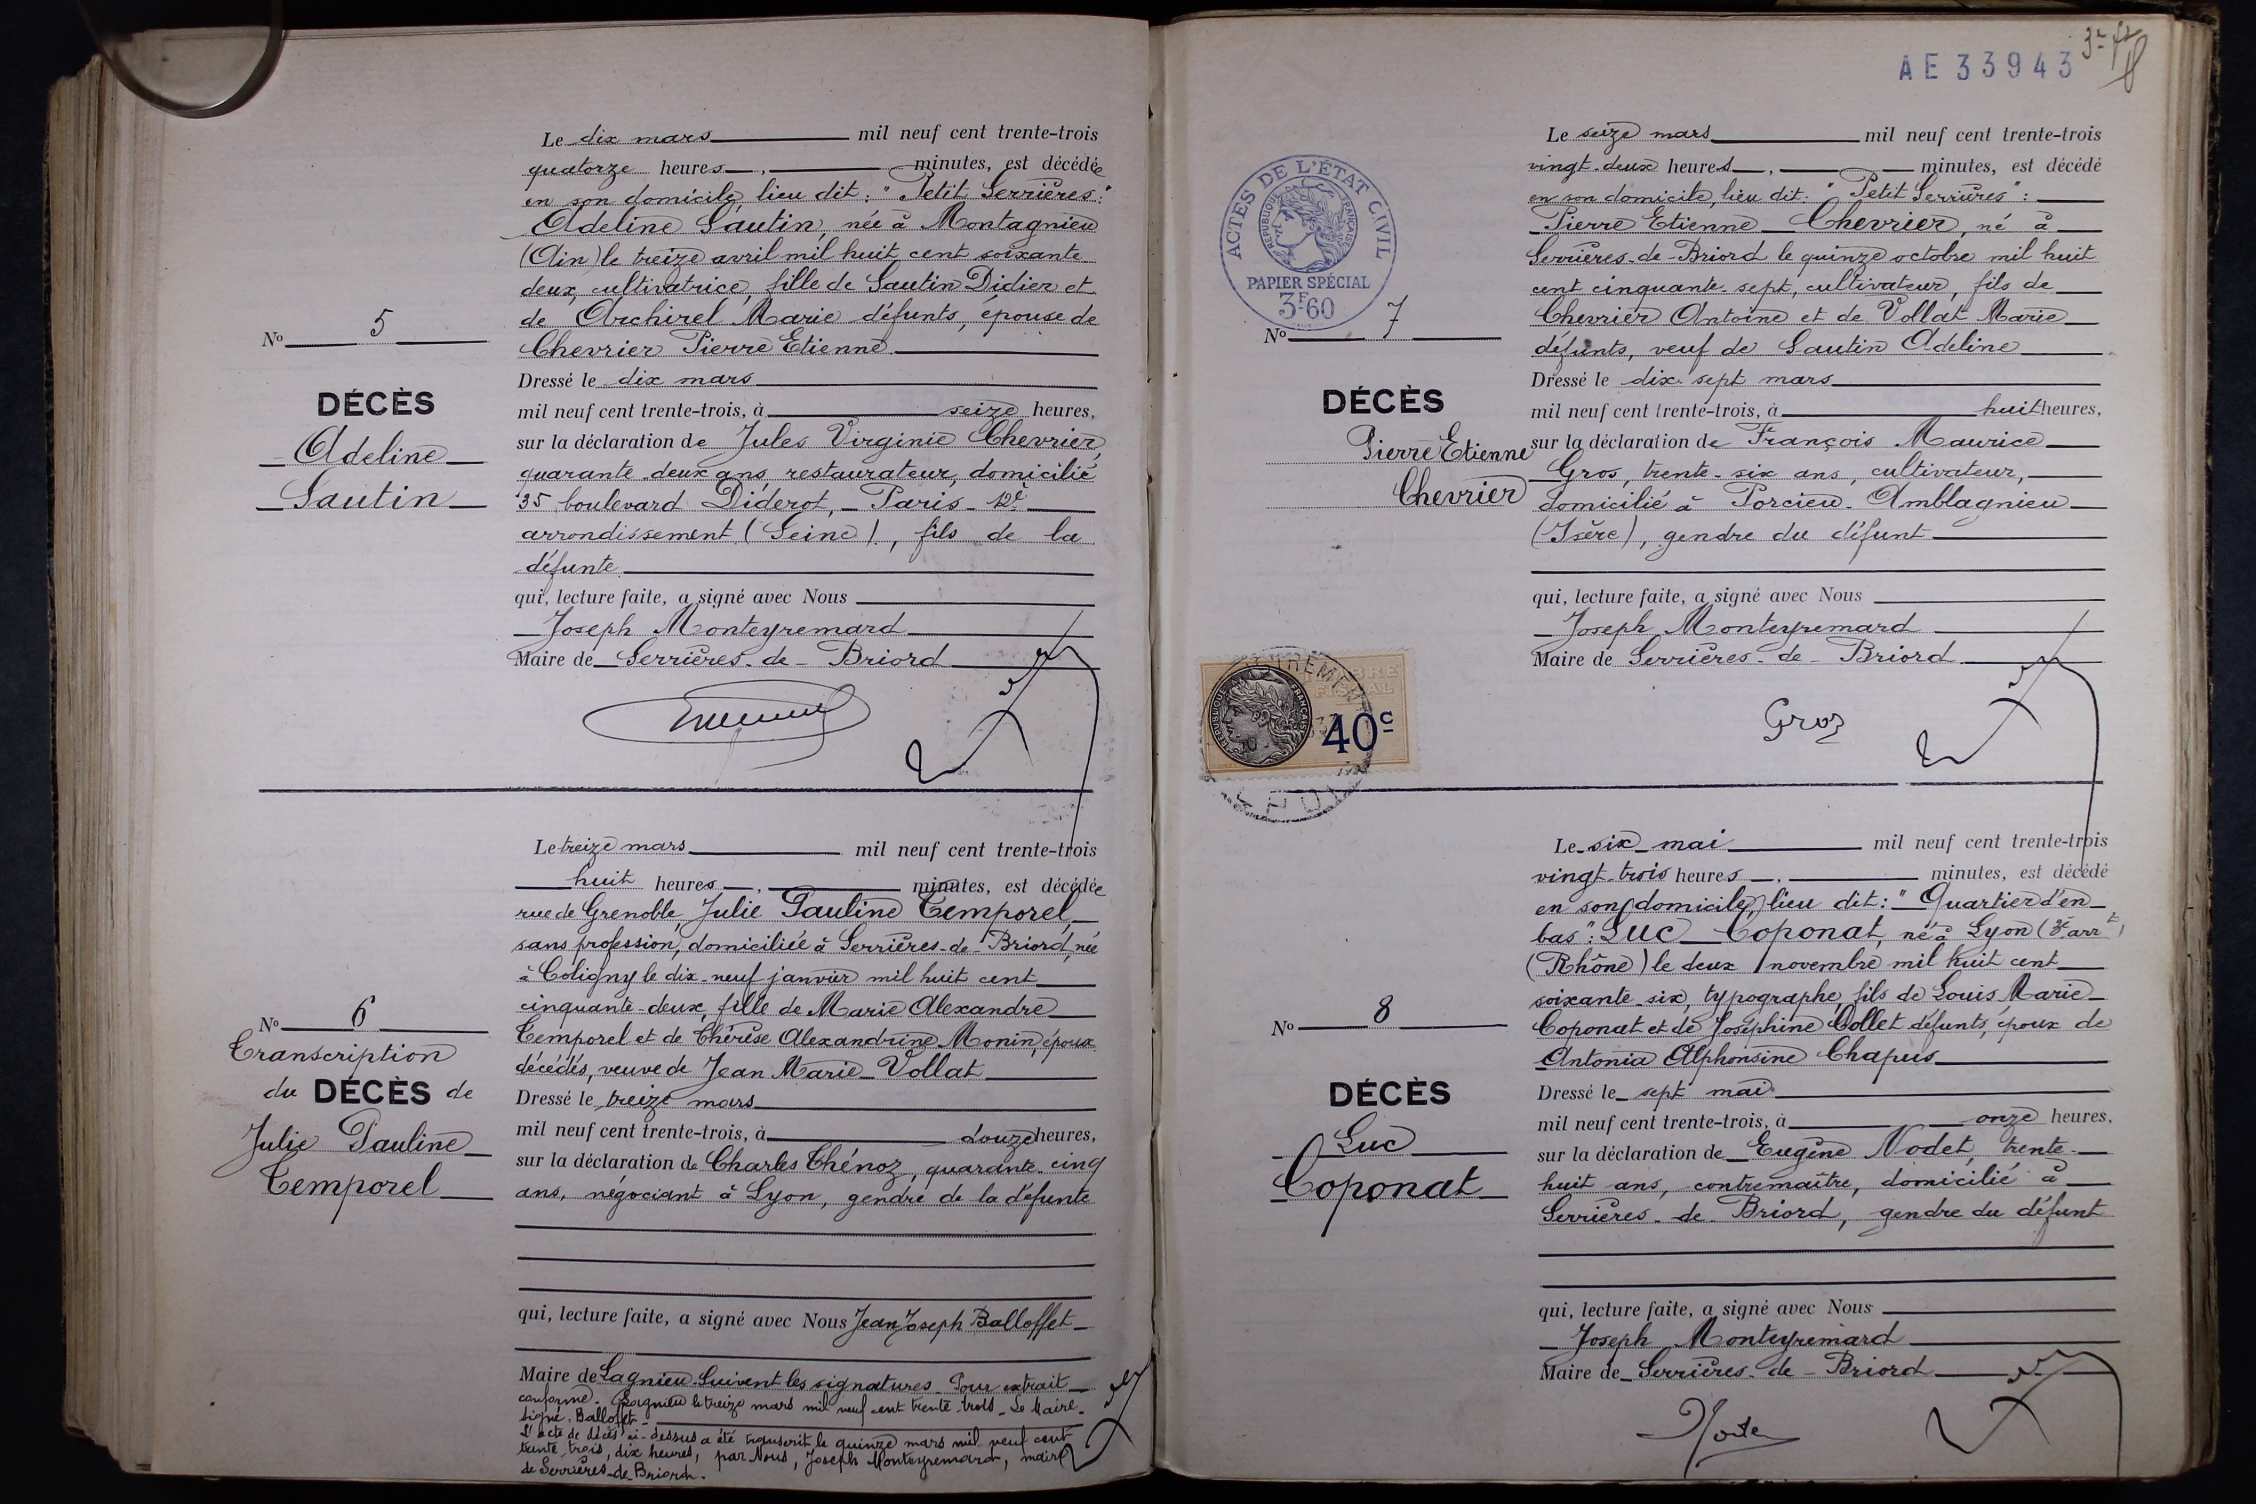 Le dix mars mil neuf cent trente-trois
quatorze heures, minutes, est décédée
en son domicile, lieu dit : "Petit Serrières" :
Adeline Sautin, née à Montagnieu
(Ain) le treize avril mil huit cent soixante
deux, cultivatrice, fille de Sautin Didier et
de Archirel Marie défunts, épouse de
Chevrier Pierre Etienne
Dressé le dix mars
mil neuf cent trente-trois, à seize heures,
sur la déclaration de Jules Virginie Chevrier,
quarante deux ans, restaurateur, domicilié
35 boulevard Diderot, Paris 12e
arrondissement (Seine), fils de la
défunte
qui, lecture faite, a signé avec Nous
Joseph Monteyremard
Maire de Serrières-de-Briord
No 5
DÉCÈS
Adeline
Sautin
Le treize mars mil neuf cent trente-trois
huit heures, minutes, est décédée
rue de Grenoble, Julie Pauline Temporel,
sans profession, domiciliée à Serrières-de-Briord, née
à Coligny le dix-neuf janvier mil huit cent
cinquante-deux, fille de Marie Alexandre
Temporel et de Thérèse Alexandrine Monin, époux
décédés, veuve de Jean Marie Vollat
Dressé le treize mars
mil neuf cent trente-trois, à douze heures,
sur la déclaration de Charles Thénoz, quarante-cinq
ans, négociant à Lyon, gendre de la défunte
qui, lecture faite, a signé avec Nous Jean Joseph Balloffet
Maire de Lagnieu. Suivent les signatures. Pour extrait
conforme. Lagnieu le treize mars mil neuf cent trente-trois. Le Maire.
Signé. Balloffet
L'acte de décès ci-dessus a été transcrit le quinze mars mil neuf cent
trente trois, dix heures, par Nous, Joseph Monteyremard, maire
de Serrières-de-Briord.
No 6
Transcription
du DÉCÈS de
Julie Pauline
Temporel
AE 33943
ACTES DE L'ÉTAT CIVIL
RÉPUBLIQUE FRANÇAISE
PAPIER SPÉCIAL
3F60
Le seize mars mil neuf cent trente-trois
vingt-deux heures, minutes, est décédé
en son domicile, lieu dit : "Petit Serrières" :
Pierre Etienne Chevrier, né à
Serrières-de-Briord le quinze octobre mil huit
cent cinquante-sept, cultivateur, fils de
Chevrier Antoine et de Vollat Marie
défunts, veuf de Sautin Adeline
Dressé le dix-sept mars
mil neuf cent trente-trois, à huit heures,
sur la déclaration de François Maurice
Gros, trente-six ans, cultivateur,
domicilié à Porcieu-Amblagnieu
(Isère), gendre du défunt
qui, lecture faite, a signé avec Nous
Joseph Monteyremard
Maire de Serrières-de-Briord
Gros
No 7
DÉCÈS
Pierre Etienne
Chevrier
TIMBRE
FISCAL
RÉPUBLIQUE FRANÇAISE
40c
Le six mai mil neuf cent trente-trois
vingt-trois heures, minutes, est décédé
en son domicile, lieu dit : "Quartier d'en
bas" : Luc Coponat, né à Lyon (3e arrt)
(Rhône) le deux novembre mil huit cent
soixante-six, typographe, fils de Louis Marie
Coponat et de Joséphine Collet défunts, époux de
Antonia Alphonsine Chapuis
Dressé le sept mai
mil neuf cent trente-trois, à onze heures,
sur la déclaration de Eugène Nodet, trente-
huit ans, contremaître, domicilié à
Serrières-de-Briord, gendre du défunt
qui, lecture faite, a signé avec Nous
Joseph Monteyremard
Maire de Serrières-de-Briord
No 8
DÉCÈS
Luc
Coponat